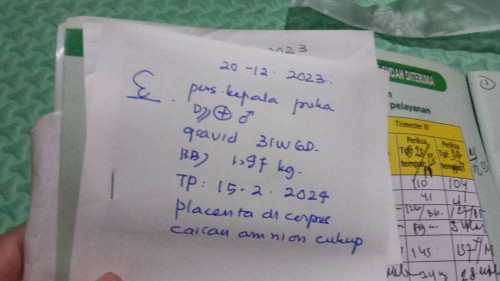 2023
20-12-2023.
pers. kepala puka
DJJ ⊕ ♂
gravid 31W6D.
BBJ 1.97 kg.
TP: 15-2-2024
placenta di corpus
cairan amnion cukup
SUDAH DITERIMA
pelayanan
Trimester III
Periksa Periksa
110 104
41 41
145